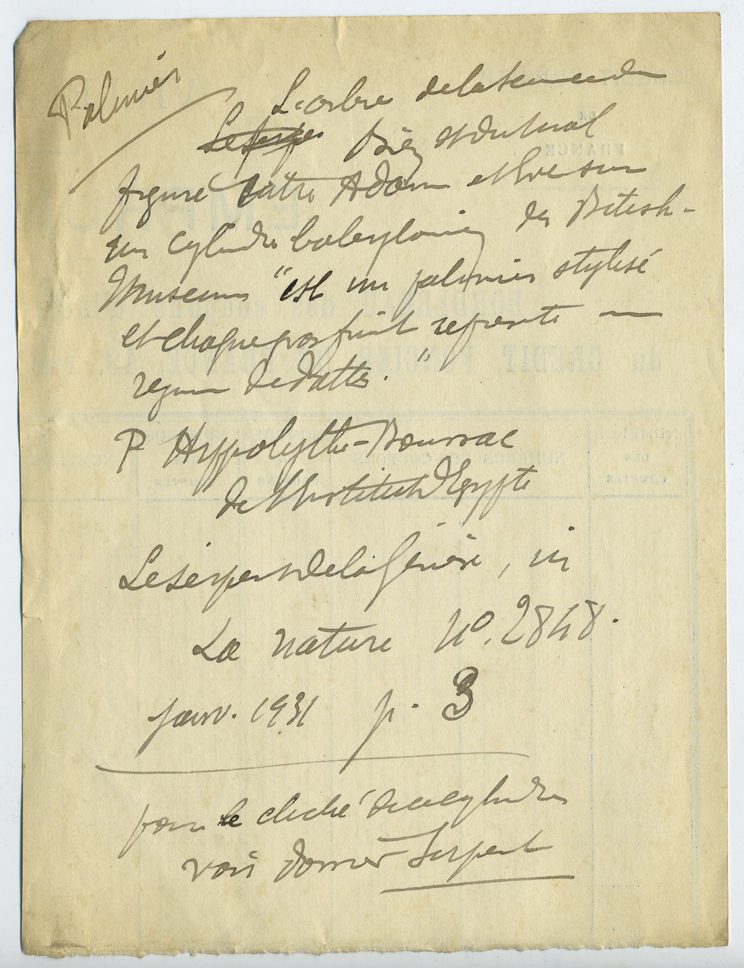 Palmier
L'arbre de la science du
Le serpe bien et du mal
figuré entre Adam et Eve sur
un cylindre babylonien du British-
Museum "est un palmier stylisé
et chaque gros fruit représente un
régime de dattes."
P Hippolythe-Boussac
de l'Institut d'Egypte
Le serpent de la Genèse, in
La Nature N°. 2848.
janv. 1931 p. 3
pour le cliché de ce cylindre
voir dossier Serpent